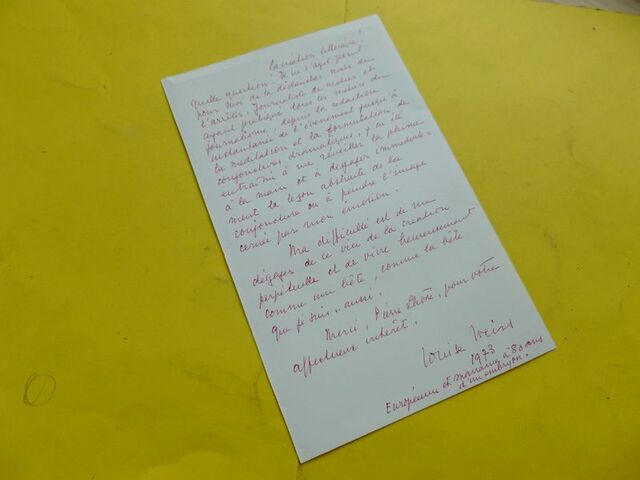 La création littéraire !
Quelle question ! Il ne s'agit point
pour moi de la déclencher mais de
l'arrêter. Journaliste de métier et
ayant pratiqué tous les métiers du
journalisme, depuis la rédaction
instantanée de l'événement jusqu'à
la méditation et la formulation de
conjonctures dramatiques, j'ai été
entraînée à me réveiller la plume
à la main et à dégager immédiate-
ment la leçon abstraite de la
conjoncture ou à peindre l'image
cernée par mon émotion.
Ma difficulté est de me
dégager de ce vice de la création
perpétuelle et de vivre heureusement
comme une bête, comme la bête
que je suis .. aussi.
Merci, Pierre Lhoste, pour votre
affectueux intérêt.
Louise Weiss
1973
Européenne et marraine à 80 ans
d'un embryon.